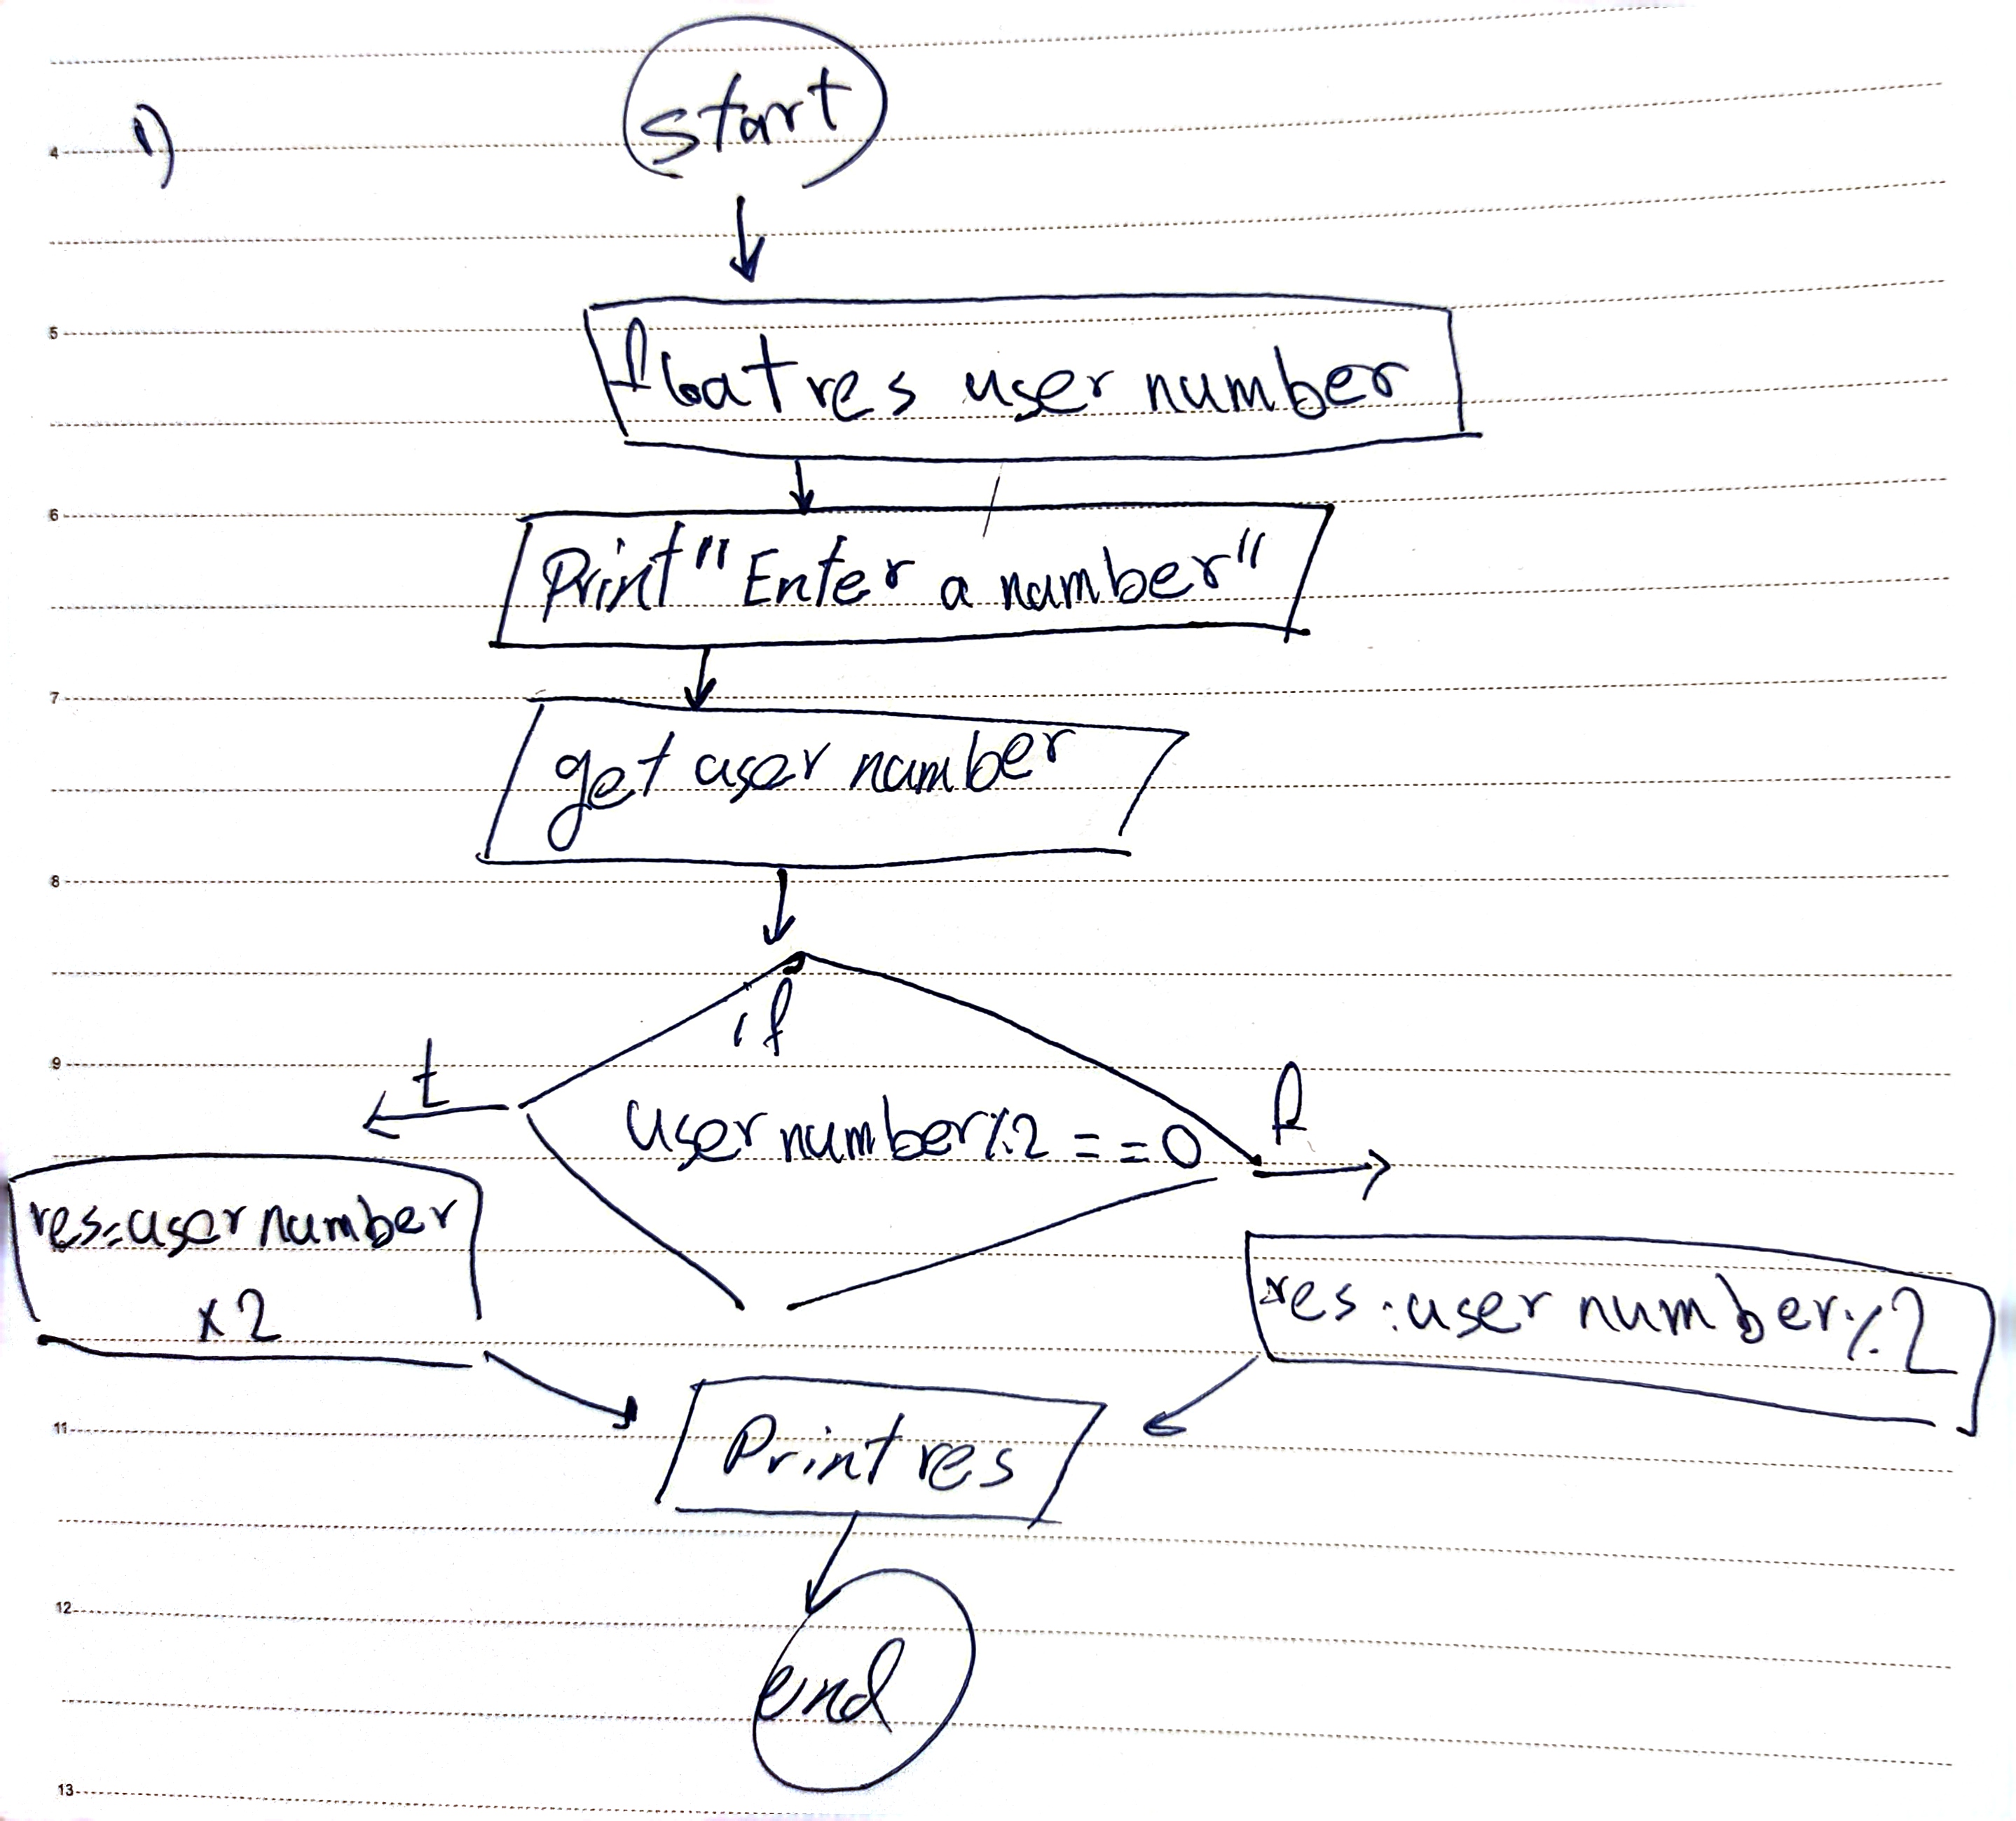 1)
start
4
5
float res user number
6
Print "Enter a number"
7
get user number
8
if
9
t
f
user number % 2 = = 0
res = user number
x 2
res : user number % 2
11
Print res
12
end
13